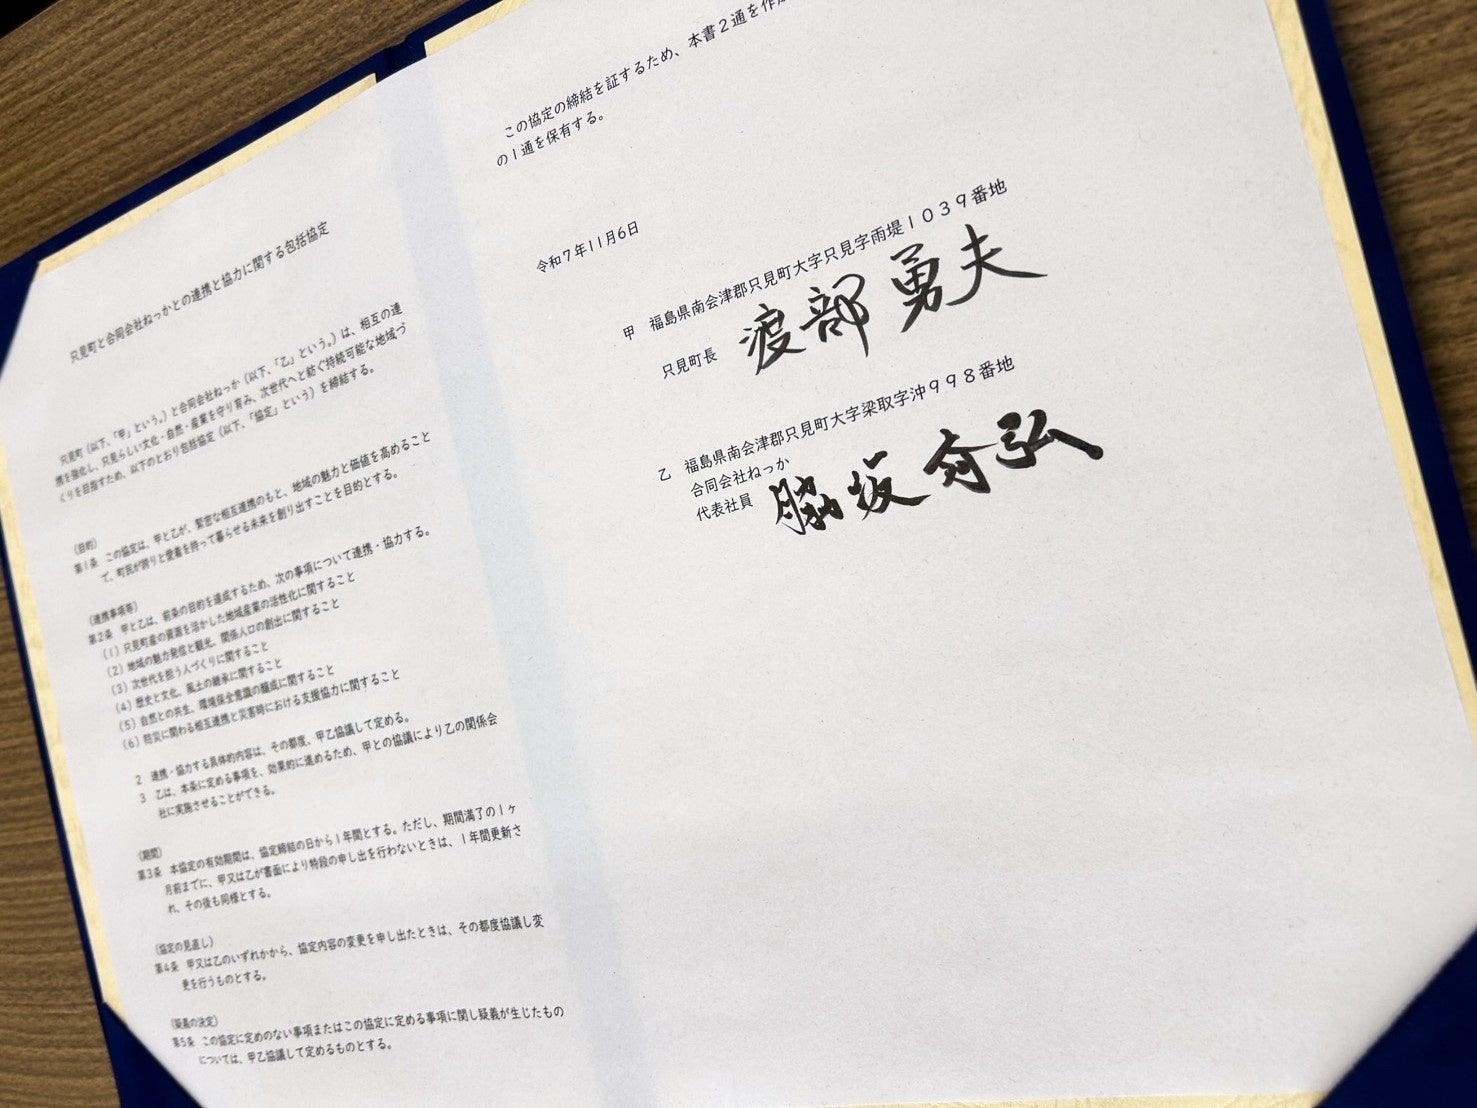 只見町と合同会社ねっかとの連携と協力に関する包括協定
只見町（以下、「甲」という。）と合同会社ねっか（以下、「乙」という。）は、相互の連
携を強化し、只見らしい文化・自然・産業を守り育み、次世代へと紡ぐ持続可能な地域づ
くりを目指すため、以下のとおり包括協定（以下、「協定」という）を締結する。
（目的）
第1条　この協定は、甲と乙が、緊密な相互連携のもと、地域の魅力と価値を高めること
で、町民が誇りと愛着を持って暮らせる未来を創り出すことを目的とする。
（連携事項等）
第2条　甲と乙は、前条の目的を達成するため、次の事項について連携・協力する。
（1）只見町産の資源を活かした地域産業の活性化に関すること
（2）地域の魅力発信と観光、関係人口の創出に関すること
（3）次世代を担う人づくりに関すること
（4）歴史と文化、風土の継承に関すること
（5）自然との共生、環境保全意識の醸成に関すること
（6）防災に関わる相互連携と災害時における支援協力に関すること
2　連携・協力する具体的内容は、その都度、甲乙協議して定める。
3　乙は、本条に定める事項を、効果的に進めるため、甲との協議により乙の関係会
社に実施させることができる。
（期間）
第3条　本協定の有効期間は、協定締結の日から1年間とする。ただし、期間満了の1ヶ
月前までに、甲又は乙が書面により特段の申し出を行わないときは、1年間更新さ
れ、その後も同様とする。
（協定の見直し）
第4条　甲又は乙のいずれかから、協定内容の変更を申し出たときは、その都度協議し変
更を行うものとする。
（疑義の決定）
第5条　この協定に定めのない事項またはこの協定に定める事項に関し疑義が生じたもの
については、甲乙協議して定めるものとする。
この協定の締結を証するため、本書2通を作成
の1通を保有する。
令和7年11月6日
甲　福島県南会津郡只見町大字只見字雨堤1039番地
只見町長　渡部勇夫
乙　福島県南会津郡只見町大字梁取字沖998番地
合同会社ねっか
代表社員　脇坂斉弘